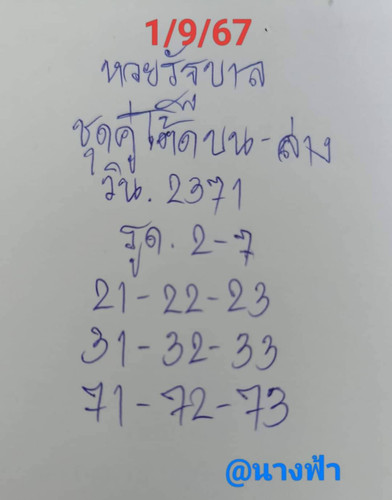 1/9/67
หวยรัฐบาล
ชุดคู่โต๊ดบน-ล่าง
วิน. 2371
รูด. 2-7
21-22-23
31-32-33
71-72-73
@นางฟ้า